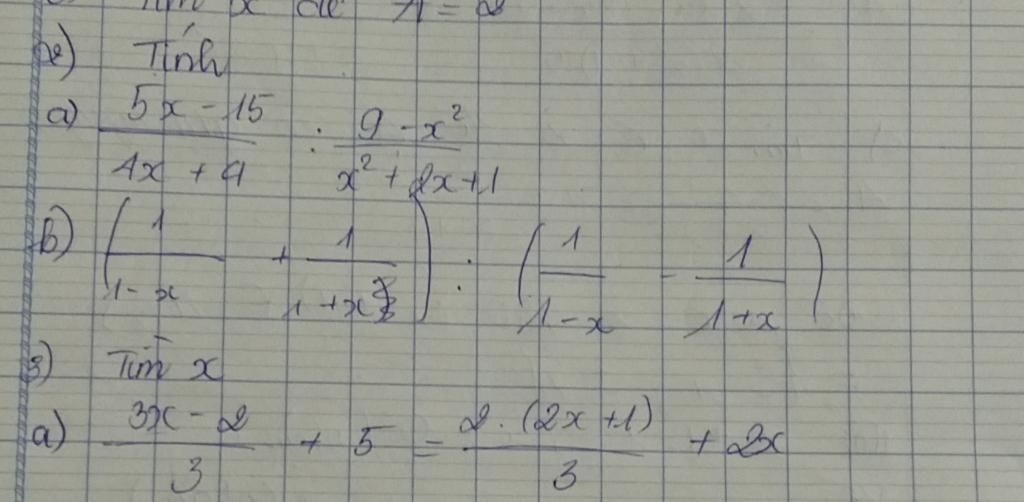 Tìm x để A = 2
2) Tính
a) (5x - 15)/(4x + 4) : (9 - x²)/(x² + 2x + 1)
b) (1/(1 - x) + 1/(1 + x)) : (1/(1 - x) - 1/(1 + x))
3) Tìm x
a) (3x - 2)/3 + 5 = (2. (2x + 1))/3 + 2x